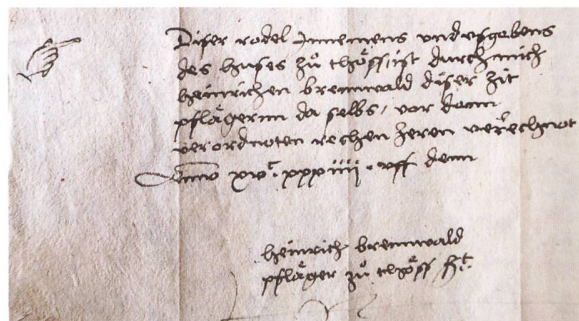 Diser rodel Innemens und usgebens
des huses zů thöss, ist durch mich
heinrichen brennwald diser zit
pflägernn da selbs, vor denn
verordnoten rechen heren verrechnot
Anno xvᶜ xxxiiii uff denn
heinrich brennwald
pfläger zů thöss